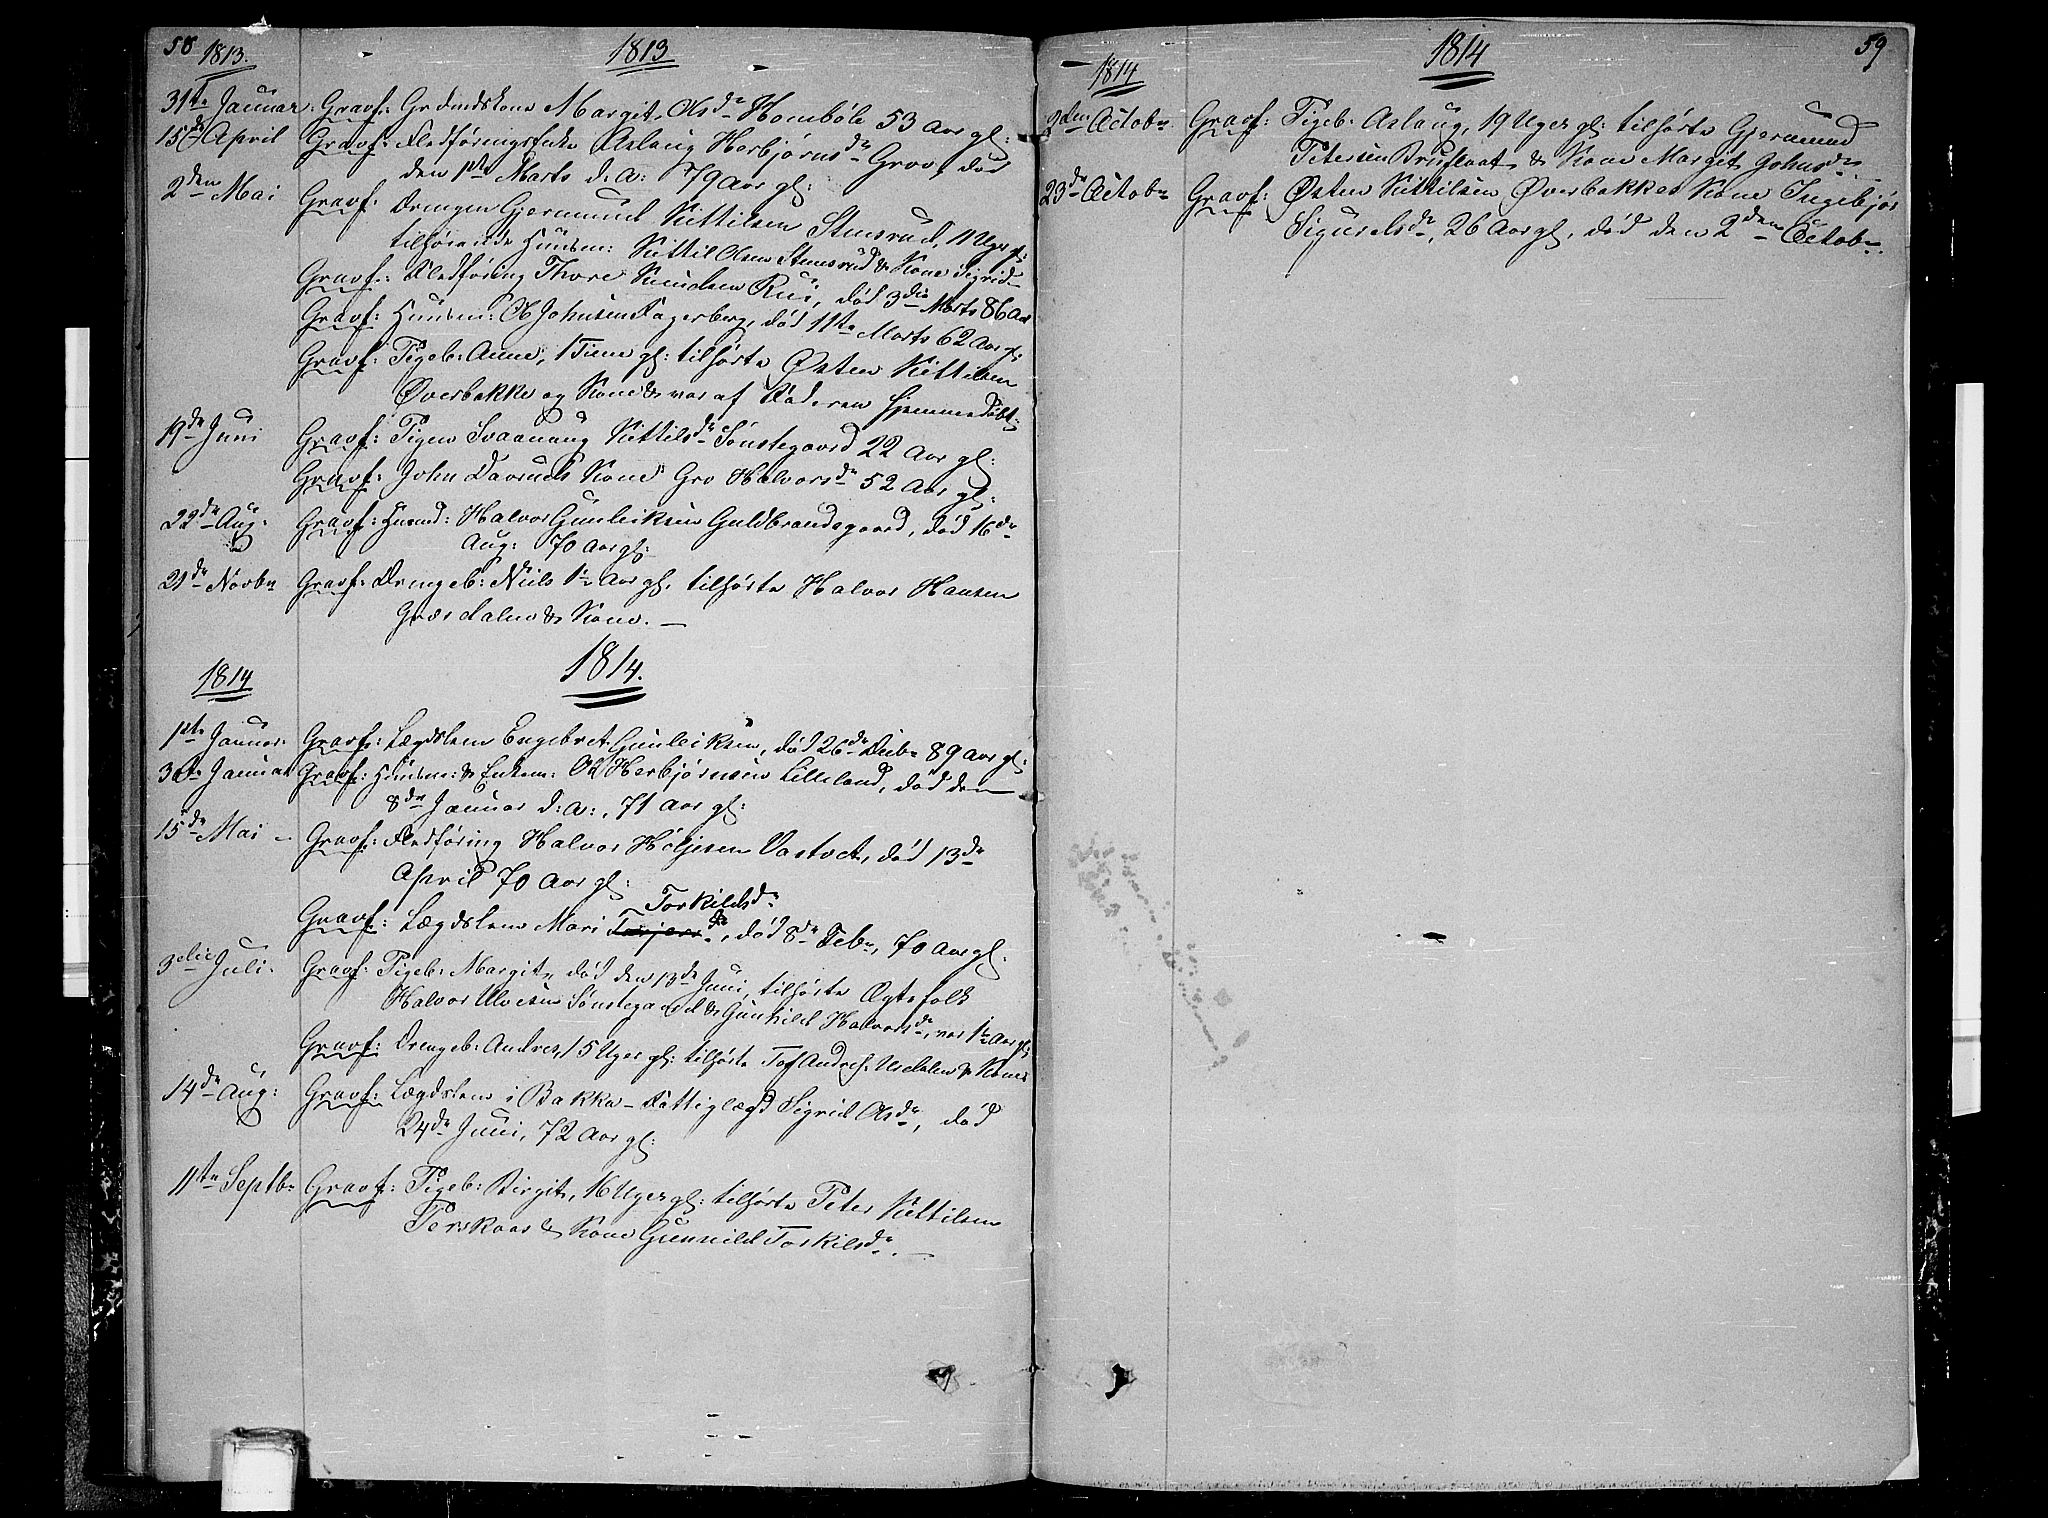 58
1813.
1813
31te Januar. Gravf: Grdmdskone Margit Olsdr Homböle 53 Aar gl:
15de April Gravf: Fledföringsenke Aslaug Herbjörnsdr Grov, död
den 1ste Marts d: a: 79 Aar gl:
2den Mai Gravf: Drengen Gjermund Kittilsen Stensrud, 11 Uger gl:
tilhörende Huusm: Kittil Olsen Stensrud & Kone Sigrid
Gravf: Fledföring Thore Knudsen Rui, död 3die Marts 86 Aar
Gravf: Huusm: Ol Johnsen Fagerberg, död 11te Marts 62 Aar gl:
Gravf: Pigeb: Anne, 1 Time gl: tilhörte Østen Kittilsen
Øverbakke og Kone & var af Faderen hjemmedöbt.
19de Juni Gravf: Pigen Svaanaug Kittilsdr Sönstegaard 22 Aar gl:
Gravf: John Davruds Kone Gro Halvorsdr 52 Aar gl:
22de Aug: Gravf: Huusmd: Halvor Gunleiksen Guldbrandsgaard, död 16de
Aug: 70 Aar gl:
21de Novbr Gravf: Drengeb: Niels 1½ Aar gl. tilhörte Halvor Hansen
Græsdalen & Kone.
1814
1814.
1ste Januar. Gravf: Lægdslem Engebret Gunleiksen, död 26de Decbr 89 Aar gl:
30te Januar Gravf: Huusm: & Enkem: Ol Herbjörnsen Lilleland, död den
8de Januar d: a:, 71 Aar gl:
15de Mai Gravf: Fledföring Halvor Höljesen Vastvet, död 13de
April 70 Aar gl:
Torkildsdr
Gravf: Lægdslem Mari Torjersdr, död 8de Febr, 70 Aar gl:
3die Juli. Gravf: Pigeb: Margit, död den 13de Juni, tilhörte Ægtefolk
Halvor Ulvesen Sönstegaard & Gunhild Halvorsdr, var 1½ Aar gl:
Gravf: Drengeb: Andres, 15 Uger gl: tilhörte Tof Andres: Usdalen & Kone
14de Aug: Gravf: Lægdslem i Bakka-Fattiglægd Sigrid Olsdr, död
24de Juni, 72 Aar gl:
11te Septbr Gravf: Pigeb: Birgit, 16 Uger gl: tilhörte Peter Kittilsen
Perskaas & Kone Gunhild Torkilsdr.
59
1814
1814
2den Octobr Gravf: Pigeb: Aslaug, 19 Uger gl: tilhörte Gjermund
Petersen Bruflaat & Kone Margit Johnsdr.
23de Octobr Gravf: Østen Kittilsen Øverbakkes Kone Ingebjör
Sigurdsdr, 26 Aar gl, död den 2den Octobr.